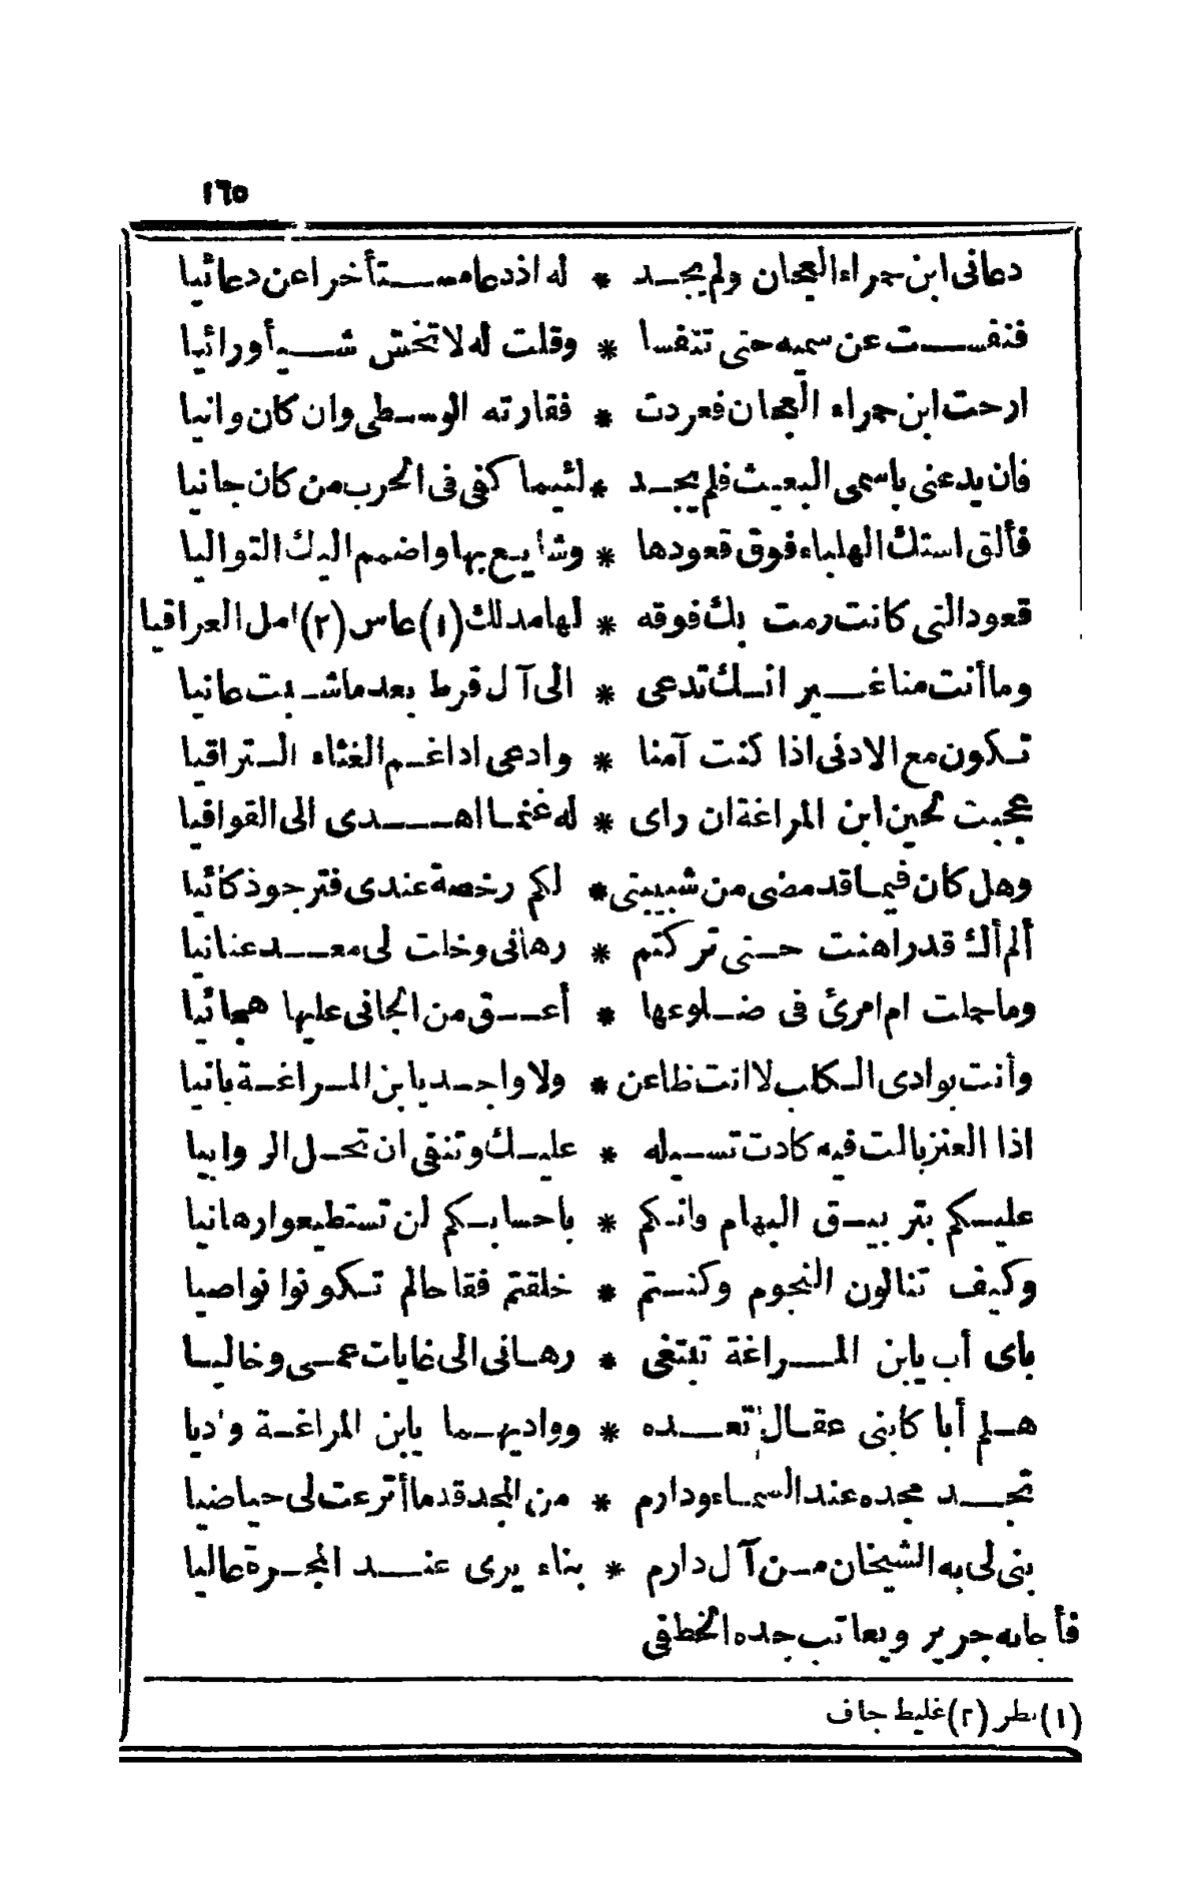 ١٦٥
دعانى ابن حمراء العجان ولم يجد * له اذ دعا مستأخرا عن دعائيا
فنفست عن سميه حتى تنفسا * وقلت له لا تخش شيأ ورائيا
ارحت ابن حمراء العجان فعردت * فقارته الوسطى وان كان وانيا
فان يدعنى باسمى البعيث فلم يجد * لئيما كفى فى الحرب من كان جانيا
فألق استك الهلباء فوق قعودها * وشايع بها واضمم اليك التواليا
قعود التى كانت رمت بك فوقه * لها مدلك (١) عاس (٢) امل العراقيا
وما أنت منا غير انك تدعى * الى آل قرط بعد ما شبت عانيا
تكون مع الادنى اذا كنت آمنا * وادعى اذا غم الغثاء التراقيا
عجبت لحين ابن المراغة ان راى * له غنما اهدى الى القوافيا
وهل كان فيما قد مضى من شبيبتى * لكم رخصة عندى فترجو ذكائيا
ألم أك قد راهنت حتى تركتم * رهانى وخلت لى معد عنانيا
وما حملت ام امرئ فى ضلوعها * أعق من الجانى عليها هجائيا
وأنت بوادى الكاب لا انت ظاعن * ولا واجد يا بن المراغة بانيا
اذا العنز بالت فيه كادت تسيله * عليك وتنقى ان تحل الروابيا
عليكم بتربيق البهام وانكم * باحسابكم لن تستطيعوا رهانيا
وكيف تنالون النجوم وكنتم * خلقتم فقاحا لم تكونوا نواصيا
باى أب يابن المراغة تبتغى * رهانى الى غايات عمى وخاليا
هلم أبا كابنى عقال تعده * وواديهما يابن المراغة واديا
تجد مجده عند السماء ودارم * من المجد قدما أترعت لى حياضيا
بنى لى به الشيخان من آل دارم * بناء يرى عند المجرة عاليا
فأجابه جرير ويعاتب جده الخطفى
(١) بظر (٢) غليظ جاف